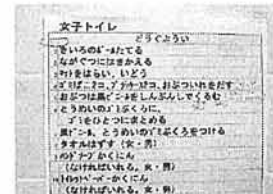 女子トイレ
どうぐようい
きいろのボールたてる
ながぐつにはきかえる
マットをはらい、いどう
ゴミばこ2コ、おぶついれをだす
おぶつは黒ビニールをしんぶんしでくるむ
とうめいのゴミぶくろに、
ゴミをひとつにまとめる
黒ビニール、とうめいのゴミぶくろをつける
タオルはずす（女・男）
ハンドソープかくにん
（なければいれる。女・男）
トイレットペーパーかくにん
（なければいれる。女・男）